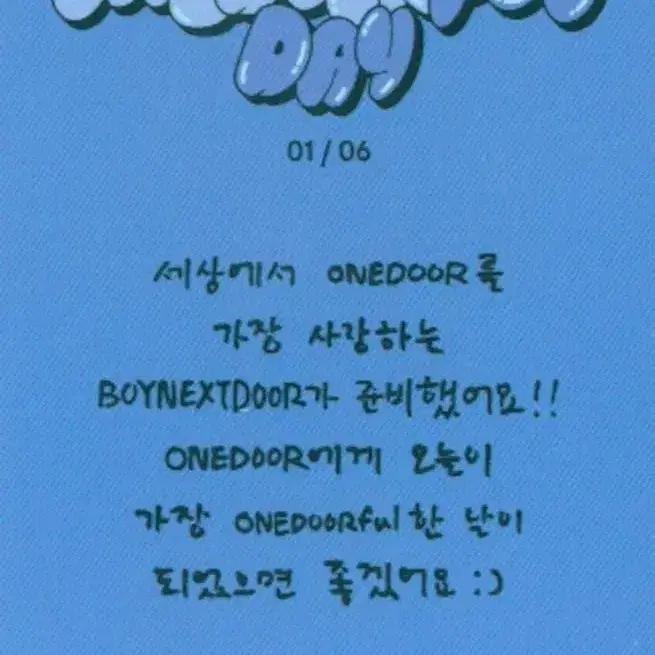 DAY
01 / 06
세상에서 ONEDOOR를
가장 사랑하는
BOYNEXTDOOR가 준비했어요!!
ONEDOOR에게 오늘이
가장 ONEDOORful한 날이
되었으면 좋겠어요 :)